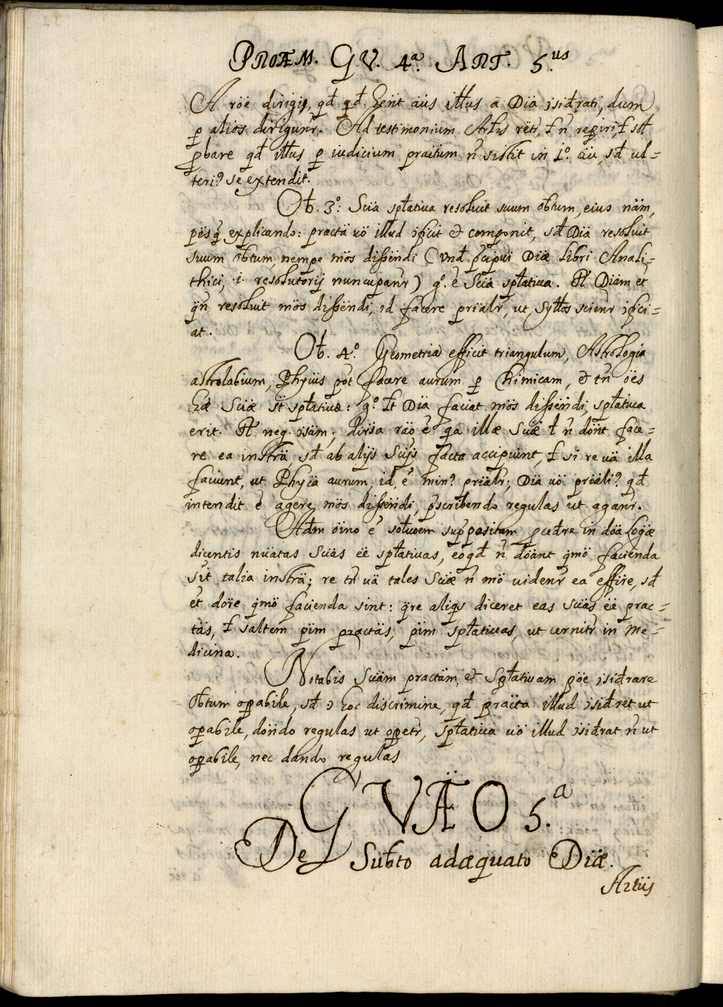 PROÆM. QV. 4ª. ART. 5.us
A röe dirigi, qd qd hent aüs illus a Diä ɔsidrati, dum
p alios dirigunr. Ad testimonium Artis
pbare qd illus p iudicium praitum n sistit in 1º. aü sd ul=
teri9 se extendit.
Ob. 3º: Scia sptatiua resoluit suum obtum, eius näm,
explicando: practä uö illud ɔficit & componit, sd Dia resoluit
suum obtum nempe mös disséndi (Vnd pcipui Diæ libri Anali=
thici, .i. resolutorij nuncupanr) g°. ē Scia sptatiua. R. Diam et
qn resoluit mös disséndi, id facere prialr, ut syllos scienr ɔfici=
at.
Ob. 4º. Geometria efficit triangulum, Astrologia
astrolabium, Phyüs pot facere aurum p Chimicam, & tn öes
hæ Sciæ st sptatiuæ: g°. lt Dia faciat mös disséndi, sptatiua
erit. R. neg. ɔsäm; diuersa räo ē qa illæ Sciæ l n dönt face=
re ea insträ sd ab alijs Scijs facta accipiunt, l si re uä illa
faciunt, ut Phyia aurum, id ē min9 prialr; Dia uö priali9 qd
intendit ē agere mös disséndi, pscribendo regulas ut aganr.
Adm öino ē solutoem suppositam in döa Logæ
dicentis nüatas Sciäs eē sptatiuas, eoqd n döänt qmö facienda
sit talia insträ; re tn uä tales Sciæ n mö uidenr ea effire, sd
et döre qmö facienda sint: qre aliqs diceret eas sciäs eē prac=
täs, l saltem pim practäs, pim sptatiuas, ut cernitr in Me=
dicina.
Notabis Sciäm practäm, et sptatiuam pöe ɔsidrare
obtum opabile, sd ɔ hoc discrimine, qd pracita illud ɔsidret ut
opabile, dando regulas ut opetr, sptatiua uö illud ɔsidrat n ut
opabile, nec dando regulas
QVÆO 5.ª
De Subto adæquato Diæ.
Artüs